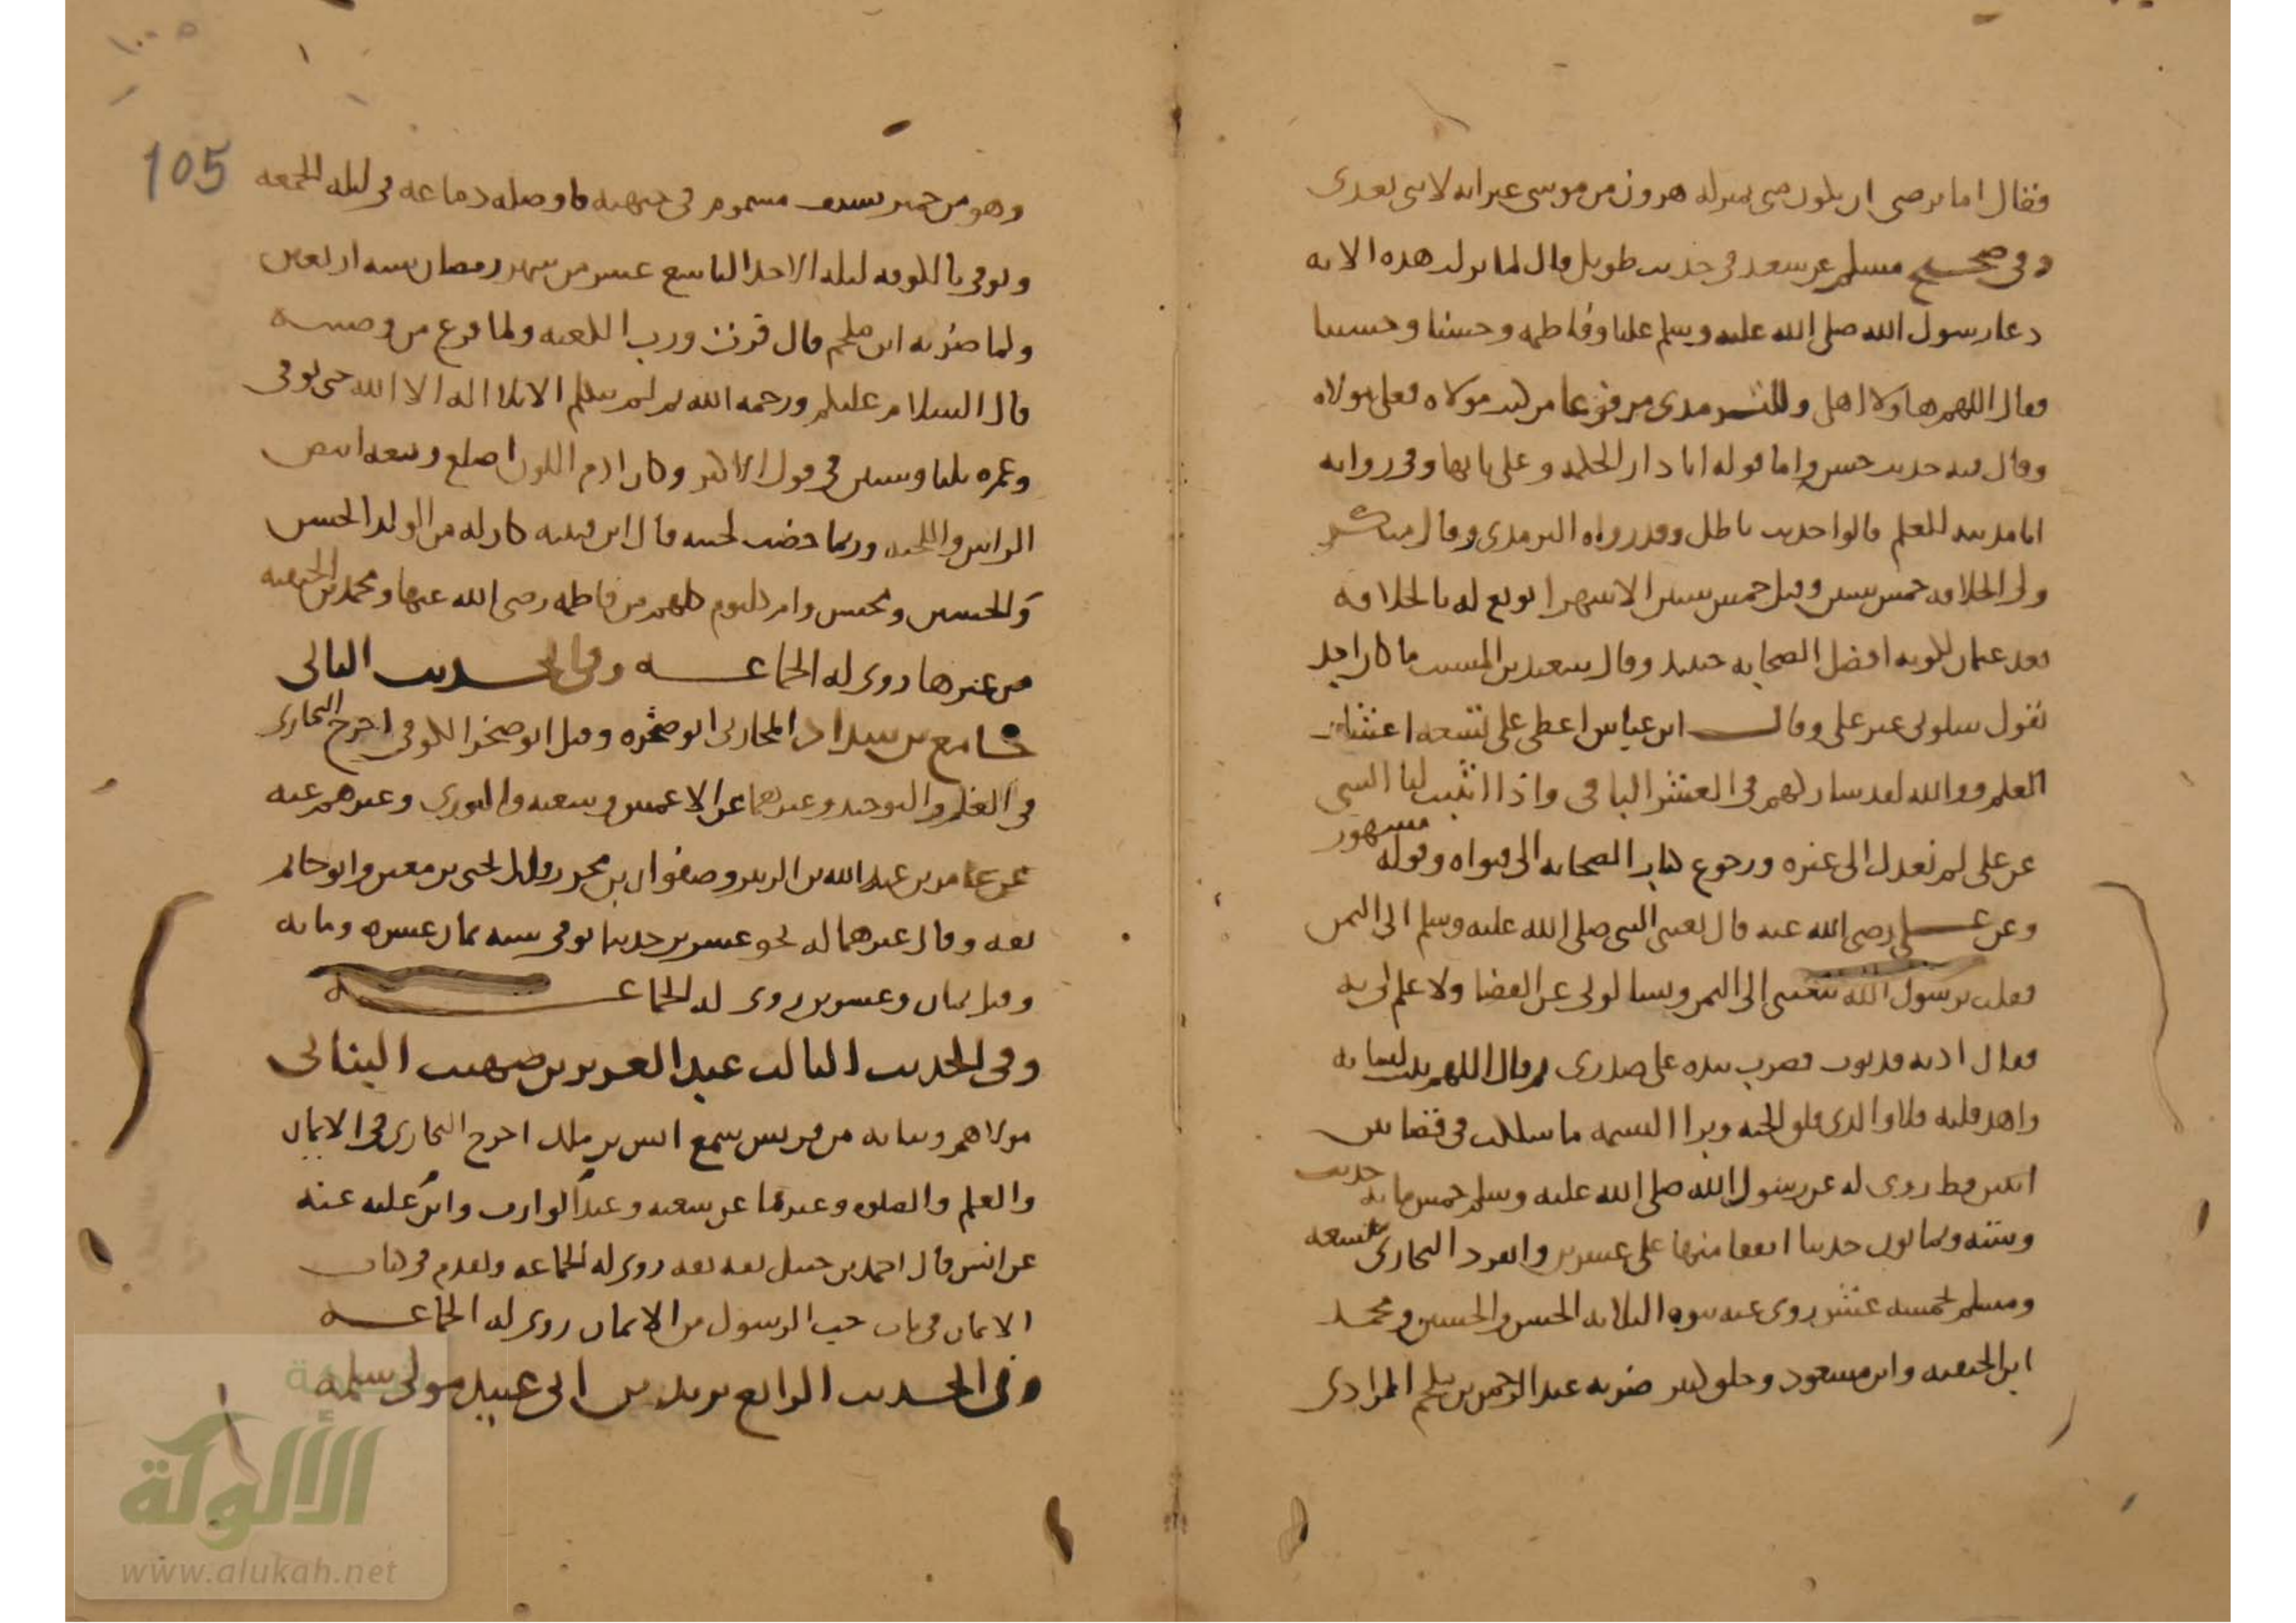 فقال اما ترضى ان تكون منى بمنزلة هرون من موسى غير انه لا نبى بعدى
وفى صحيح مسلم عن سعد فى حديث طويل قال لما نزلت هذه الاية
دعا رسول الله صلى الله عليه وسلم عليا وفاطمة وحسنا وحسينا
فقال اللهم هاولاء اهلى وللترمدى مرفوعا من كنت مولاه فعلى مولاه
وقال فيه حديث حسن واما قوله انا دار الحكمة وعلى بابها وفى رواية
انا مدينة العلم قالوا حديث باطل وقد رواه الترمدى وقال منكر
ولى الخلافة خمس سنين وقيل خمس سنين الا شهرا بويع له بالخلافة
بعد عثمان لكونه افضل الصحابة حينيد وقال سعيد بن المسيب ما كان احد
يقول سلونى غير على وقال ابن عباس اعطى على تسعة اعشار
العلم ووالله لقد شاركهم فى العشر الباقى واذا اثبت لنا الشى
عن على لم نعدل الى غيره ورجوع كبار الصحابة الى فتواه وقوله مشهور
وعن على رضى الله عنه قال بعثنى النبى صلى الله عليه وسلم الى اليمن
فقلت يرسول الله تبعثنى الى اليمن ويسالونى عن القضا ولا علم لى به
فقال ادنه فدنوت فضرب بيده على صدرى ثم قال اللهم ثبت لسانه
واهد قلبه فلا والدى فلق الحبة وبرا النسمة ما شككت فى قضا بين
اثنين قط روى له عن رسول الله صلى الله عليه وسلم خمس ماية حديث
وستة وثمانون حديثا اتفقا منها على عشرين وانفرد البخارى بتسعة
ومسلم بخمسة عشر روى عنه بنوه الثلاثة الحسن والحسين ومحمد
ابن الحنفية وابن مسعود وخلق كثير ضربه عبد الرحمن بن ملجم المرادى
105
وهو من حمير بسيف مسموم فى جبهته فاوصله دماغه فى ليلة الجمعة
وتوفى بالكوفة ليلة الاحد التاسع عشر من شهر رمضان سنة اربعين
ولما ضربه ابن ملجم قال فزت ورب الكعبة ولما فرغ من وصيته
قال السلام عليكم ورحمة الله ثم لم يتكلم الا بلا اله الا الله حتى توفى
وعمره ثلثا وستين فى قول الاكثر وكان ادم اللون اصلع ربعة ابيض
الراس واللحية وربما خضب لحيته قال ابن قتيبة كان له من الولد الحسن
والحسين ومحسن وام كلثوم كلهم من فاطمة رضى الله عنها ومحمد بن الحنفية
من غيرها روى له الجماعة وفى الحديث الثانى
جامع بن شداد المحاربى ابو صخره وقيل ابو صخر الكوفى اخرج البخارى
فى العلم والتوحيد وغيرهما عن الاعمش وشعبة والثورى وغيرهم عنه
عن عامر بن عبد الله بن الزبير وصفوان بن محرز وقال يحيى بن معين وابو حاتم
ثقة وقال غيرهما له نحو عشرين حديثا توفى سنة ثمان عشرة وماية
وقيل ثمان وعشرين روى له الجماعة
وفى الحديث الثالث عبد العزيز بن صهيب البنانى
مولاهم وبنانة من قريش سمع انس بن ملك اخرج البخارى فى الايمان
والعلم والصلوة وغيرها عن شعبة وعبد الوارث وابن علية عنه
عن انس قال احمد بن حنبل ثقة ثقة روى له الجماعة وتقدم فى كتاب
الايمان فى باب حب الرسول من الايمان روى له الجماعة
وفى الحديث الرابع يزيد بن ابى عبيد مولى سلمة
الألوكة
www.alukah.net